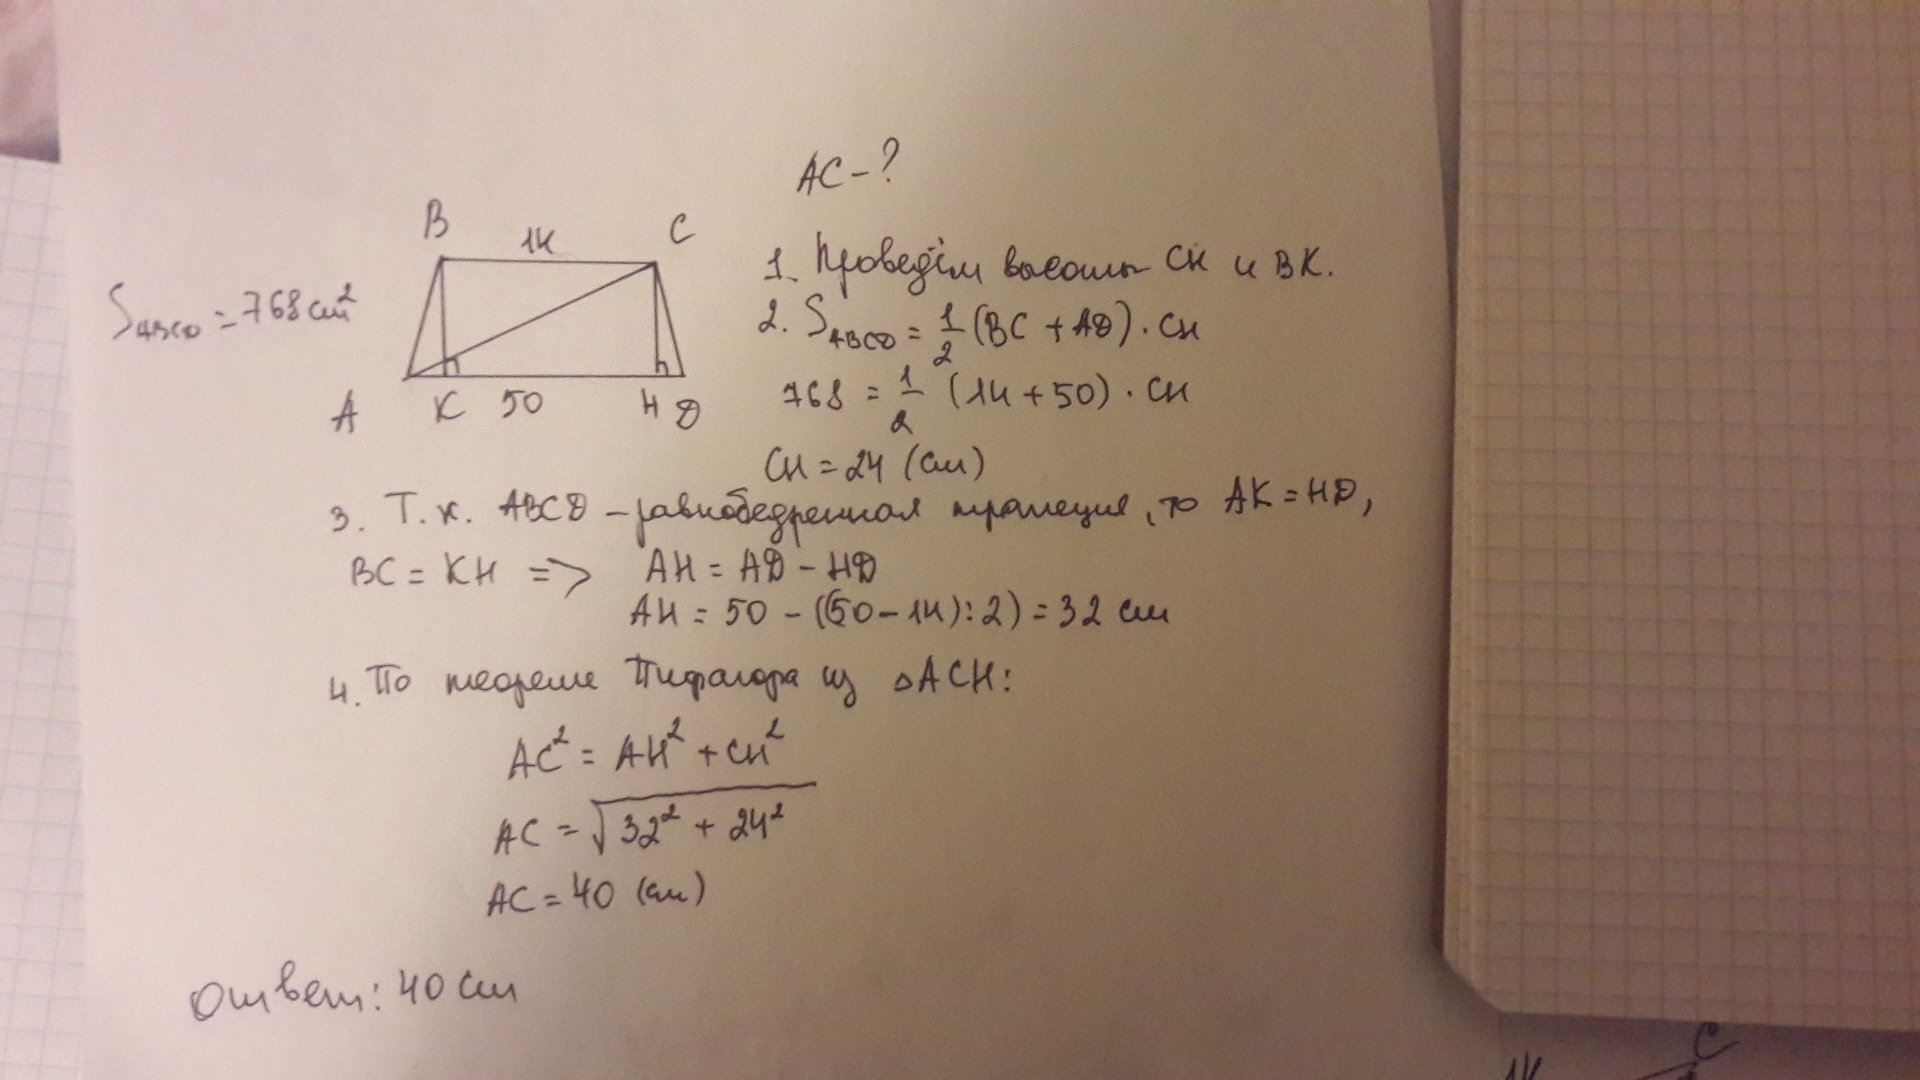 AC - ?
B 14 C
S ABCD = 768 см²
A K 50 H D
1. Проведём высоты CH и BK.
2. S ABCD = 1/2 (BC + AD) · CH
768 = 1/2 (14 + 50) · CH
CH = 24 (см)
3. Т.к. ABCD - равнобедренная трапеция, то AK = HD,
BC = KH => AH = AD - HD
AH = 50 - ((50 - 14) : 2) = 32 см
4. По теореме Пифагора из △ACH:
AC² = AH² + CH²
AC = √32² + 24²
AC = 40 (см)
Ответ: 40 см
14 C